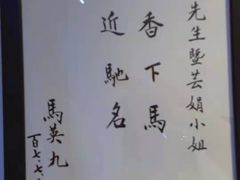 先生暨芸娟小姐
香下馬
近馳名
馬英九
百七、七、